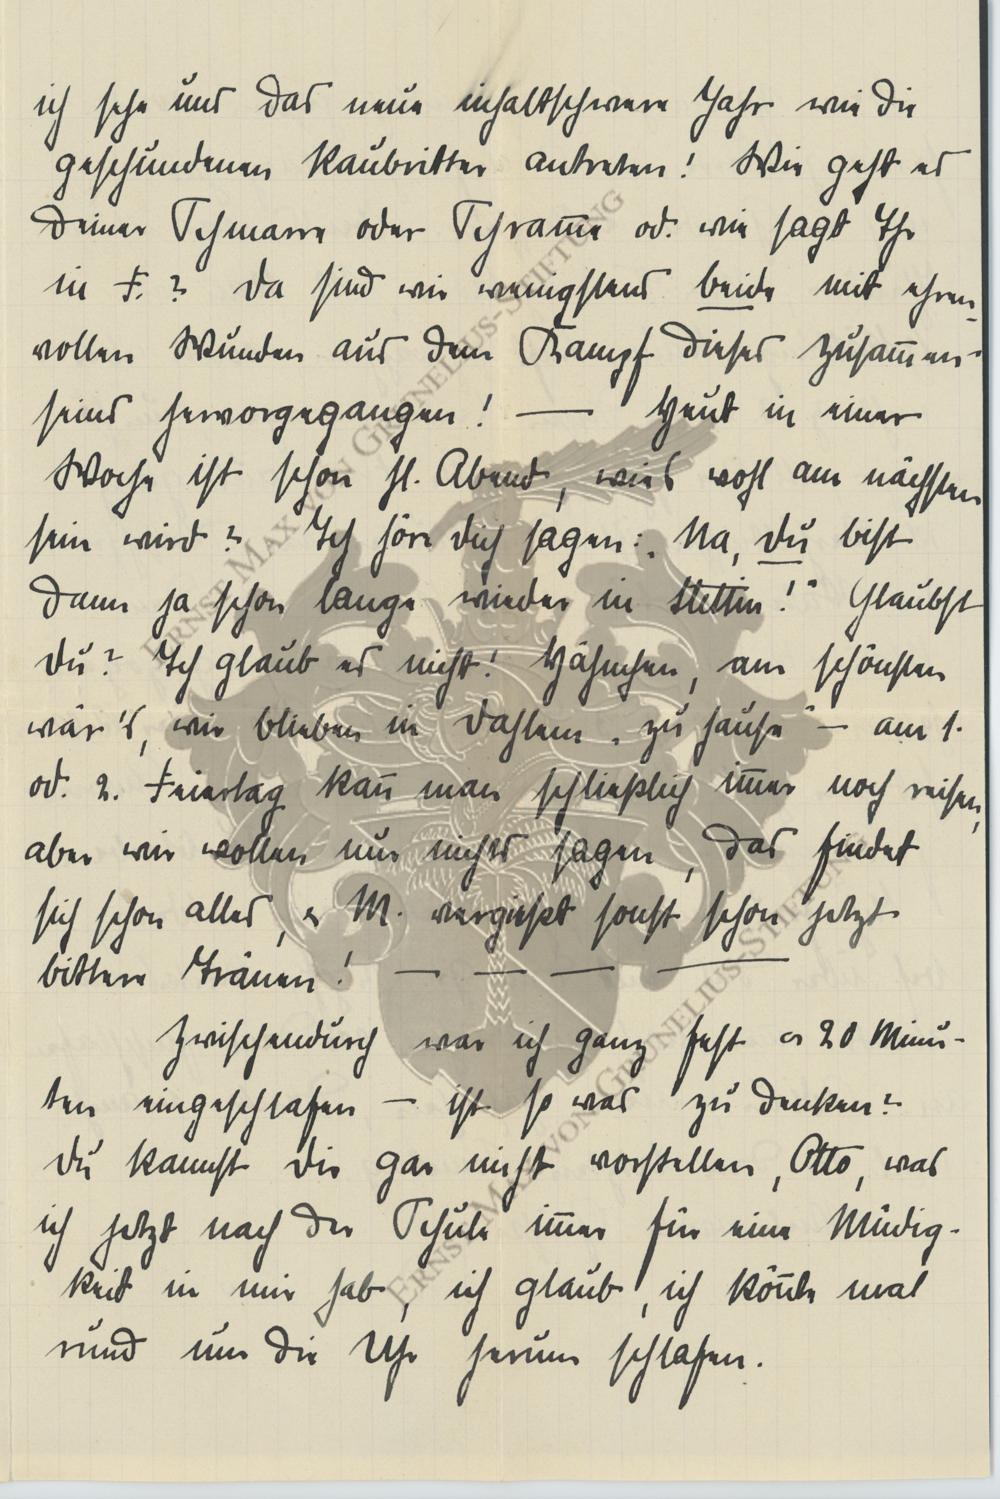 ich sehe uns das neue inhaltschwere Jahr wie die
geschundenen Raubritter antreten! Wie geht es
Deiner Schmarre oder Schram̅e od. wie sagt Ihr
in F.? Da sind wir wenigstens beide mit ehren-
vollen Wunden aus dem Kampf dieses Zusam̅en-
seins hervorgegangen! — Heut in einer
Woche ist schon hl. Abend, wie's wohl am nächsten
sein wird? Ich höre Dich sagen: „Na, du bist
dann ja schon lange wieder in Stettin!" Glaubst
Du? Ich glaub es nicht! Hähnchen, am schönsten
wär's, wir blieben in Dahlem „zu hause" — am 1.
od. 2. Feiertag kan̅ man schließlich im̅er noch reisen,
aber wir wollen nur nichts sagen, das findet
sich schon alles, M. vergießt sonst schon jetzt
bittere Tränen! — — — —
Zwischendurch war ich ganz fest 20 Minu-
ten eingeschlafen — ist so was zu denken?
Du kannst Dir gar nicht vorstellen, Otto, was
ich jetzt nach der Schule im̅er für eine Müdig-
keit in mir hab, ich glaub, ich kön̅te mal
rund um die Uhr herum schlafen.
ERNST MAX VON GRUNELIUS-STIFTUNG
ERNST MAX VON GRUNELIUS-STIFTUNG